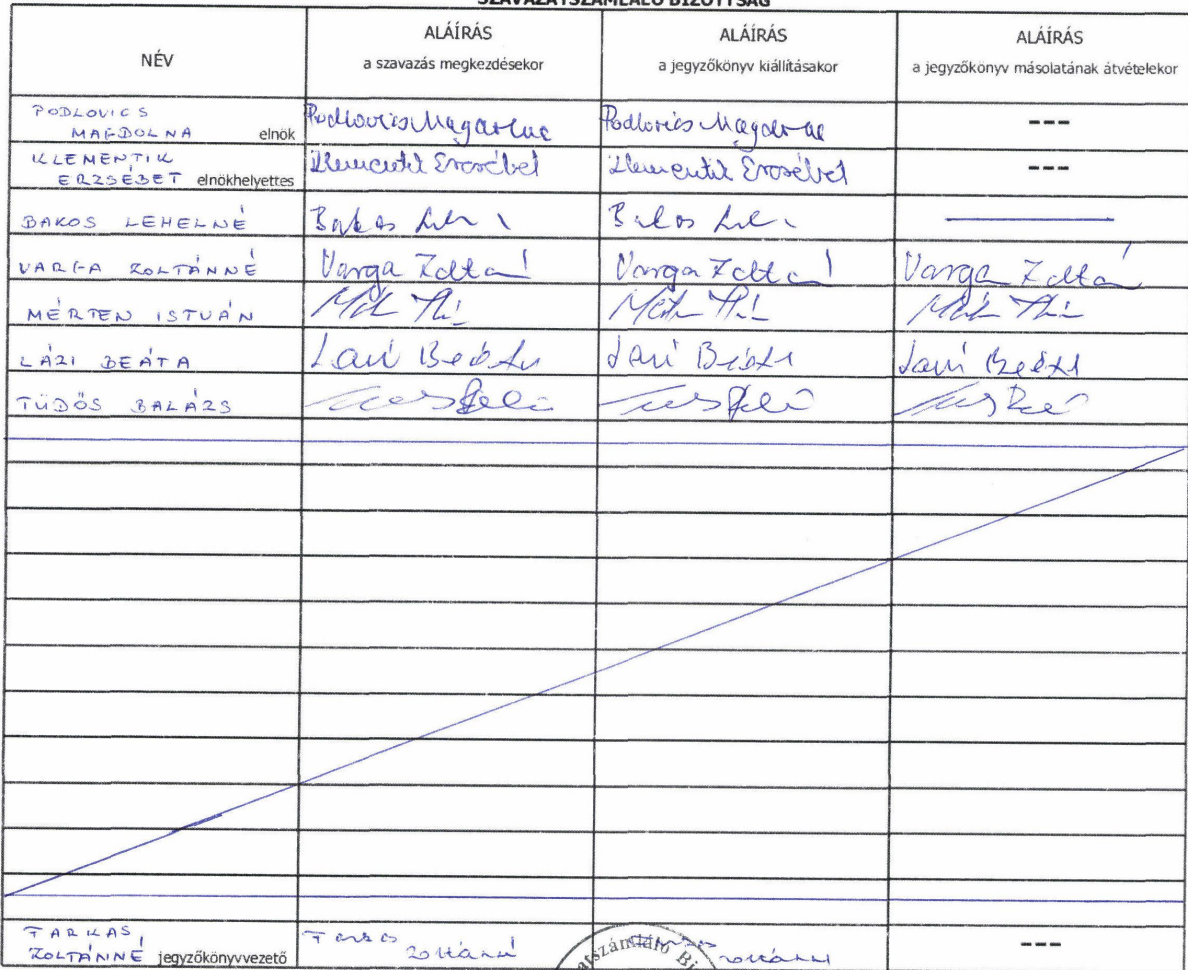 SZAVAZATSZÁMLÁLÓ BIZOTTSÁG
NÉV
ALÁÍRÁS
a szavazás megkezdésekor
ALÁÍRÁS
a jegyzőkönyv kiállításakor
ALÁÍRÁS
a jegyzőkönyv másolatának átvételekor
PODLOVICS
MAGDOLNA elnök
Podlovics Magdolna
Podlovics Magdolna
---
KLEMENTIK
ERZSÉBET elnökhelyettes
Klementik Erzsébet
Klementik Erzsébet
---
BAKOS LEHELNÉ
Bakos
Bakos
VARGA ZOLTÁNNÉ
Varga Zoltá
Varga Zoltá
Varga Zoltá
MÉRTEN ISTVÁN
LÁZI BEÁTA
Lázi Beáta
Lázi Beáta
Lázi Beáta
TÜDŐS BALÁZS
FARKAS
ZOLTÁNNÉ jegyzőkönyvvezető
Farkas
Zoltánné
Zoltánné
---
atszámláló Bi